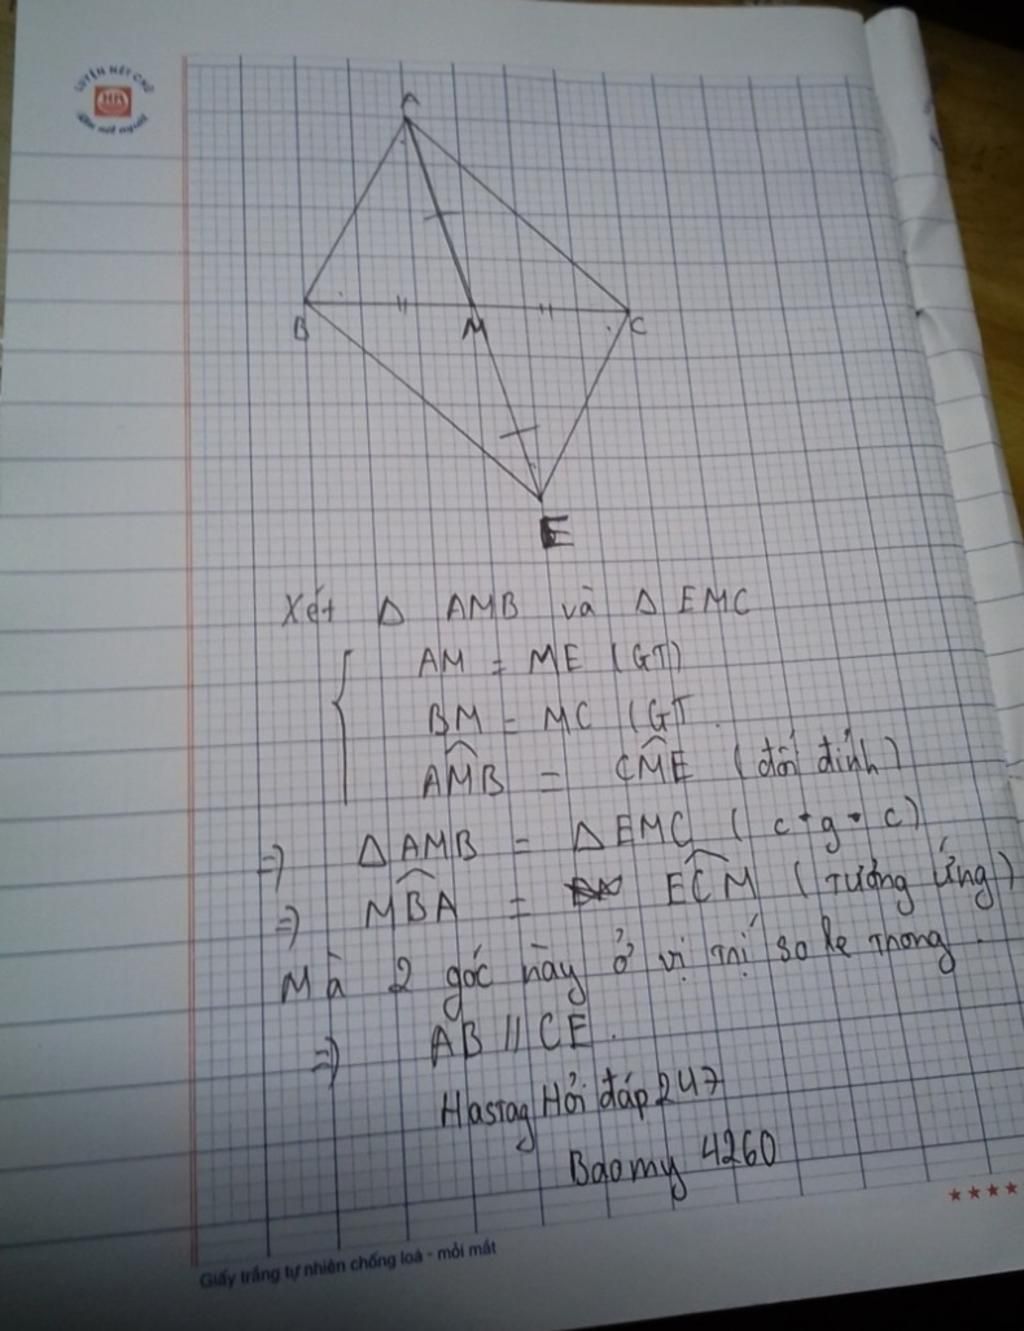 LUYỆN NÉT CHỮ
HA
Rèn nết người
A
B
M
C
E
Xét Δ AMB và Δ EMC
AM = ME (GT)
BM = MC (GT
AMB = CME (đối đỉnh)
=> ΔAMB = ΔEMC ( c·g·c)
=> MBA = ECM (tương ứng)
Mà 2 góc này ở vị trí so le trong.
=> AB // CE.
Hastag Hỏi đáp 247
Baomy 4260
Giấy trắng tự nhiên chống loá - mỏi mắt